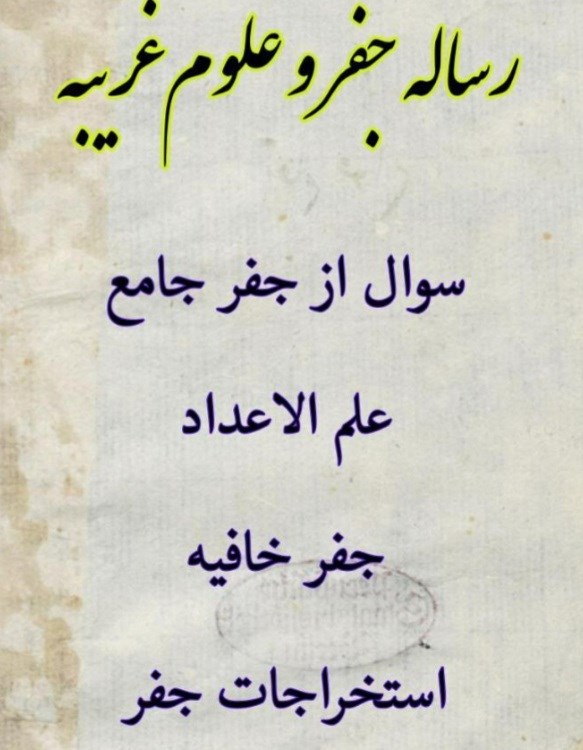 رساله جفر و علوم غریبه
سوال از جفر جامع
علم الاعداد
جفر خافیه
استخراجات جفر